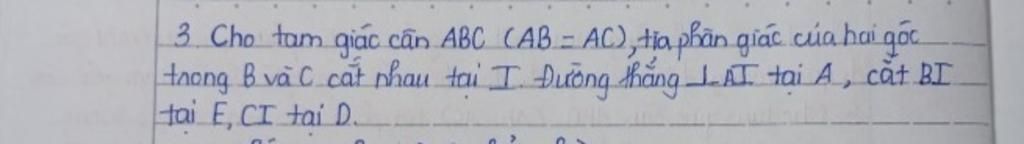 3 Cho tam giác cân ABC (AB = AC), tia phân giác của hai góc
trong B và C cắt nhau tại I. Đường thẳng ⊥ AI tại A, cắt BI
tại E, CI tại D.